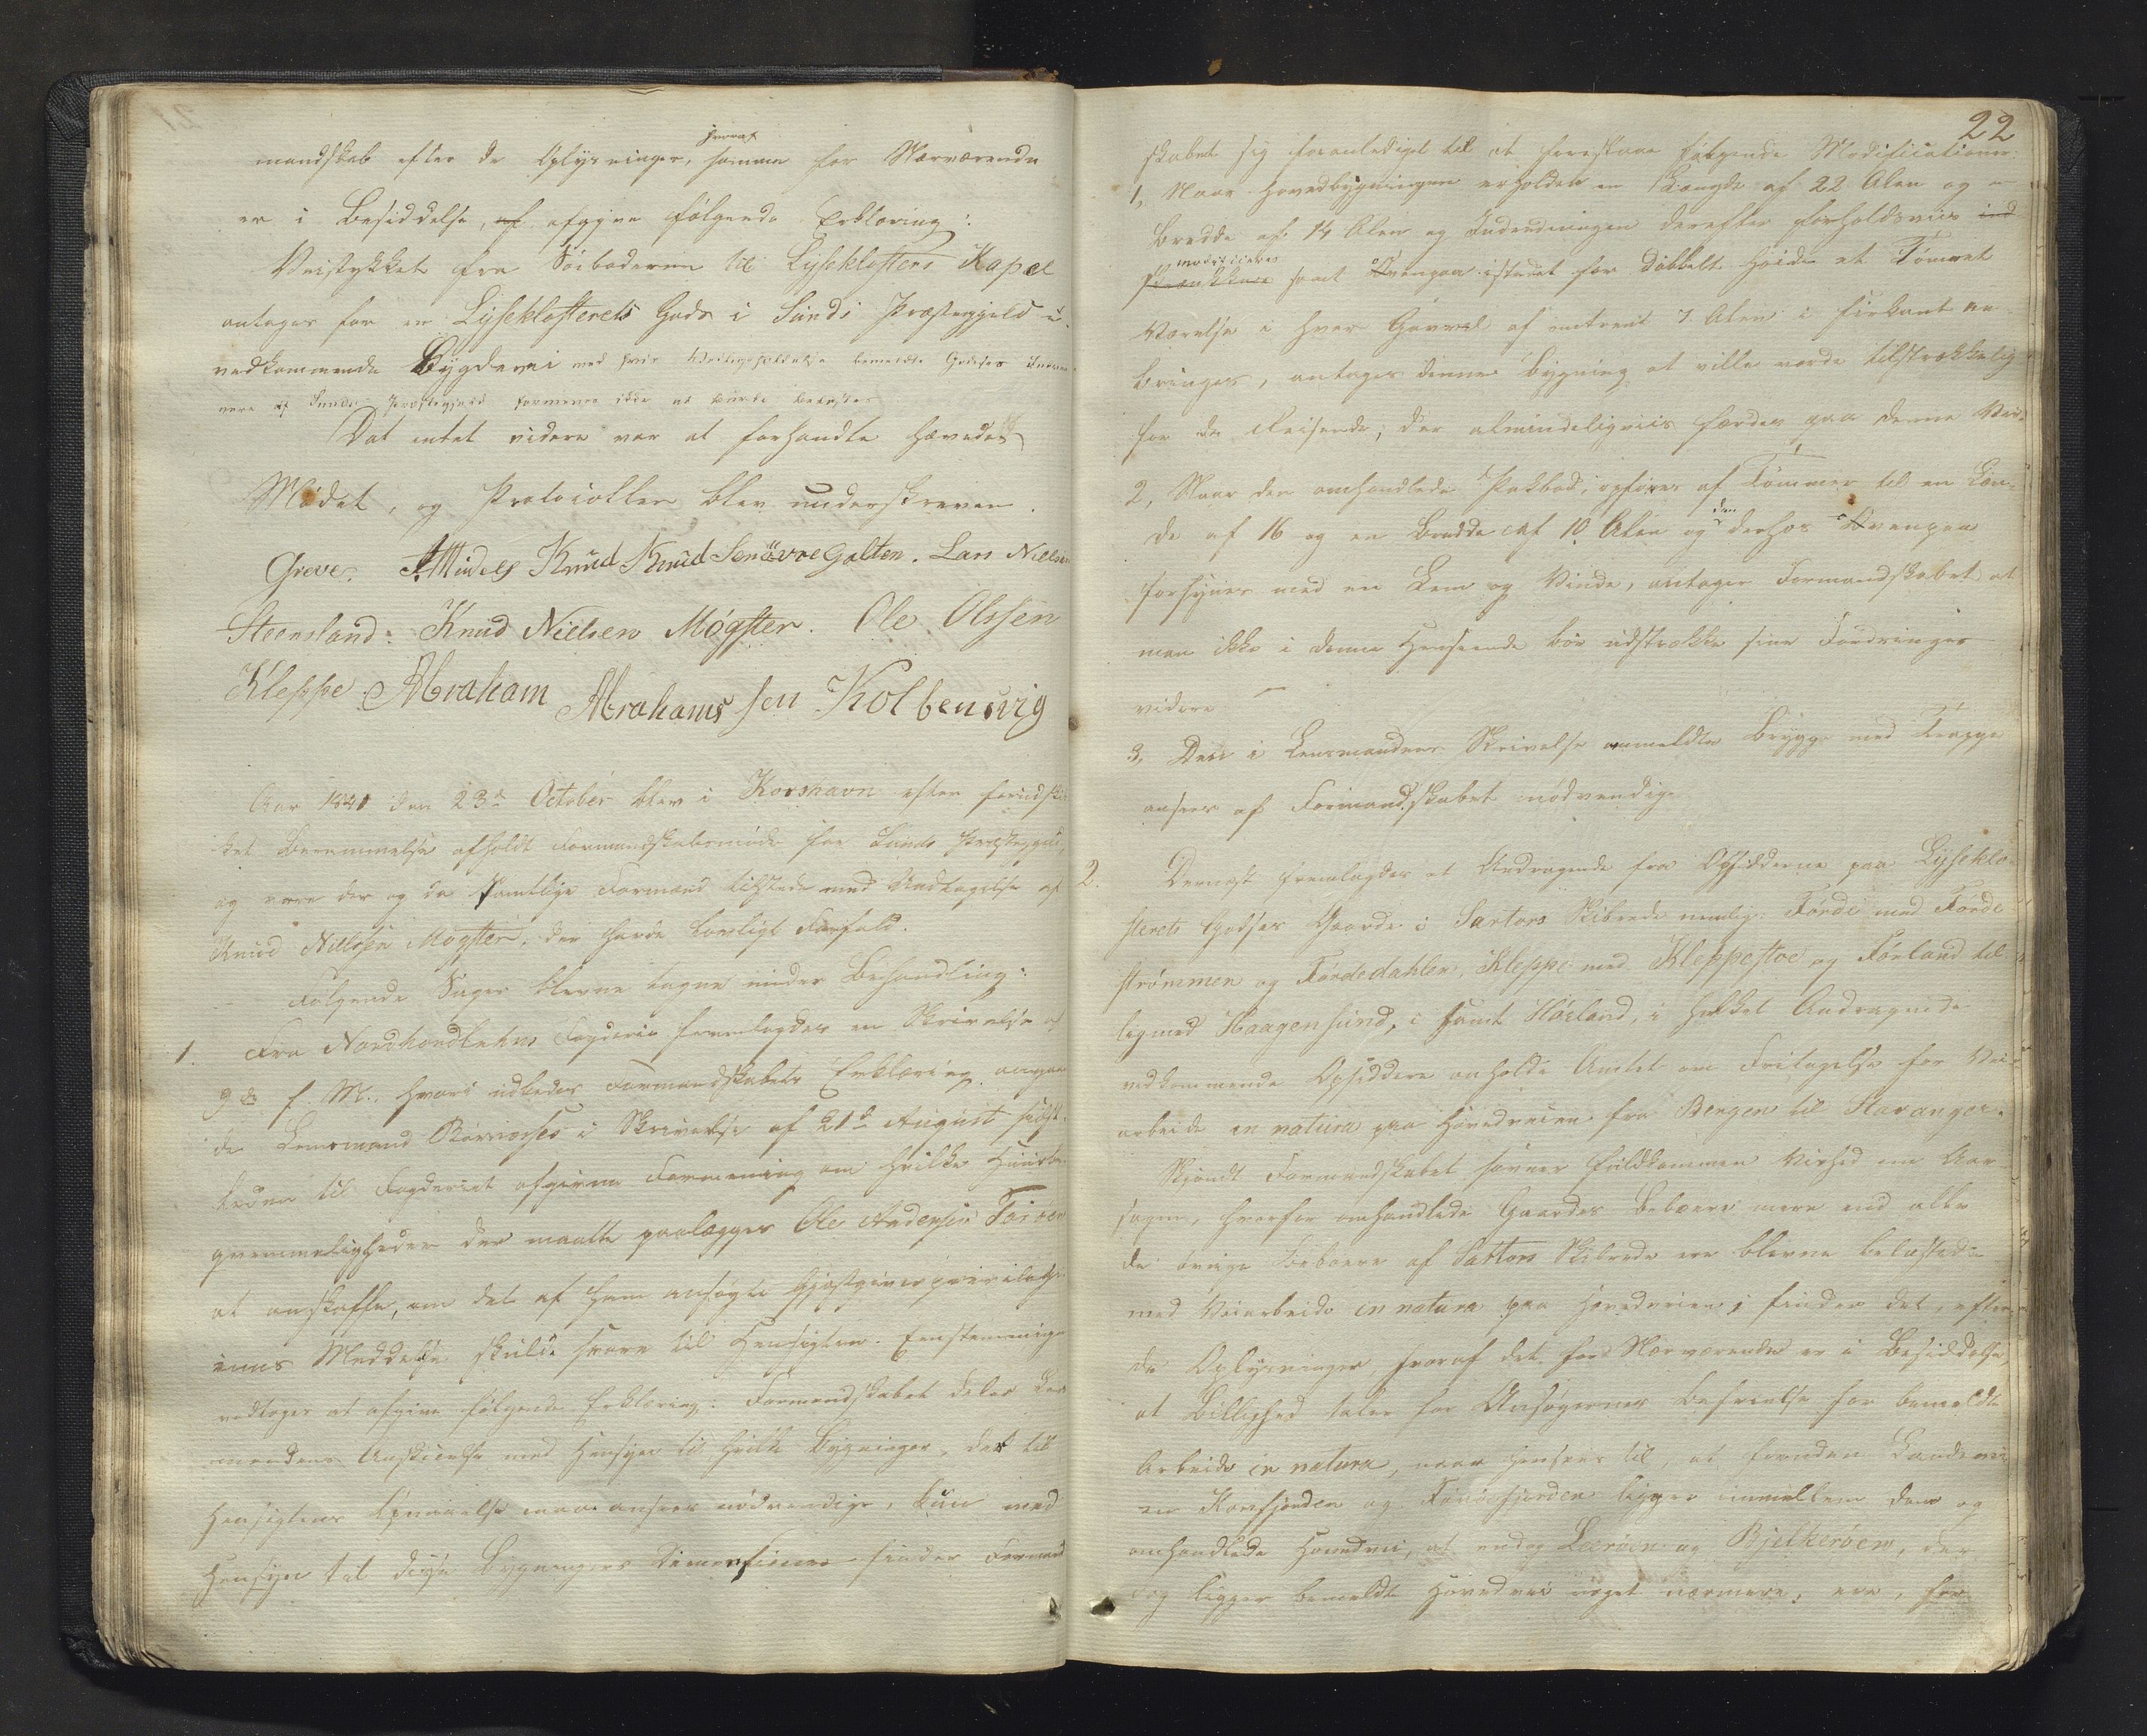 hvoraf
mandskab efter de Oplysninger, samme for Nærværende
er i Besiddelse, af afgive følgende Erklæring:
Veistykket fra Søboderne til Lyseklosters Kapel
antages for en Lyseklosterets Gods i Sunds Præstegjeld u-
vedkommende Bygdevei med hvis Vedligeholdelse bemeldte Godses Indvaa-
nere af Sunds Præstegjeld formenes ikke at burde bebyrdes
Da intet videre var at forhandle hævedes
Mødet, og Protocollen blev underskreven.
Greve. Knud Knudsen øvre Golten. Lars Nielsen
Steensland. Knud Nielsen Møgster. Ole Olssen
Kleppe Abraham Abrahamssen Kolbensvig
Aar 1841 den 23de October blev i Korshavn efter forudski-
ket Berammelse afholdt Formandskabsmøde for Sunds Præstegjeld,
og vare der og da samtlige Formænd tilstede med Undtagelse af
Knud Nielssen Møgster, der havde lovligt Forfald.
Følgende Sager bleve tagne under Behandling:
1. Fra Nordhordlehns Fogderie fremlagdes en Skrivelse af
9de f. M., hvori udbedes Formandskabets Erklæring angaaen-
de Lensmand i Skrivelse af 21de August sidst-
leden til Fogderiet afgivne Formening om hvilke Huusbe-
qvemmeligheder der maatte paalægges Ole Andersen Farøen
at anskaffe, om det af ham ansøgte Gjæstgiverprivilegi-
ums Meddelelse skulde svare til Hensigten. Eenstemmigen
vedtoges at afgive følgende Erklæring: Formandskabet deler Lens-
mandens Anskuelse med Hensyn til hvilke Bygninger, der til
Hensigtens Opnaaelse maae ansees nødvendige, kun med
Hensyn til disse Bygningers Dimensioner finder Formand-
22
skabet sig foranlediget til at foreslaae følgende Modificationer:
1, Naar Hovedbygningen erholder en Længde af 22 Alen og en
Bredde af 14 Alen og Indredningen derefter forholdsviis ind
modificeres
samt Ovenpaa istedet for dobbelt Høide et Tømret
Værelse i hver Gavel af omtrent 7 Alen i Firkant an-
bringes, antages denne Bygning at ville vorde tilstrækkelig
for de Reisende, der almindeligviis færdes paa denne Vei.
2, Naar den omhandlede Pakbod, opføres af Tømmer til en Læn-
de af 16 og en Bredde af 10 Alen og den derhos Ovenpaa
forsynes med en Lem og Vinde, antager Formandskabet at
man ikke i denne Henseende bør udstrække sine Fordringer
videre
3, Den i Lensmandens Skrivelse ommeldte Brygge med Trappe
ansees af Formandskabet nødvendig.
2. Dernæst fremlagdes et Andragende fra Opsidderne paa Lyseklo-
sterets Godses Gaarde i Sartors Skibrede nemlig: Førde med Førde
strømmen og Førdedahlen, Kleppe med Kleppestoe og Førland til
ligemed Haagensund, samt Høiland, i hvilket Andragende
vedkommende Opsiddere anholde Amtet om Fritagelse for Vei-
arbeide in natura paa Hovedveien fra Bergen til Stavanger.
Skjøndt Formandskabet savner fuldkommen Vished om Aar-
sagen, hvorfor omhandlede Gaardes Beboere mere end alle
de øvrige Beboere af Sartors Skibrede ere blevne belastede
med Veiarbeide in natura paa Hovedveien, finder det, efter
de Oplysninger, hvoraf det for Nærværende er i Besiddelse,
at Billighed taler for Ansøgernes Befrielse for bemeldte
Arbeide in natura, naar hensees til, at foruden Landevei
en Korsfjorden og Farøefjorden ligger imellem dem og
omhandlede Hovedvei, at endog Lerøen og Bjelkerøen, der
dog ligger bemeldte Hovedvei noget nærmere, ere, for